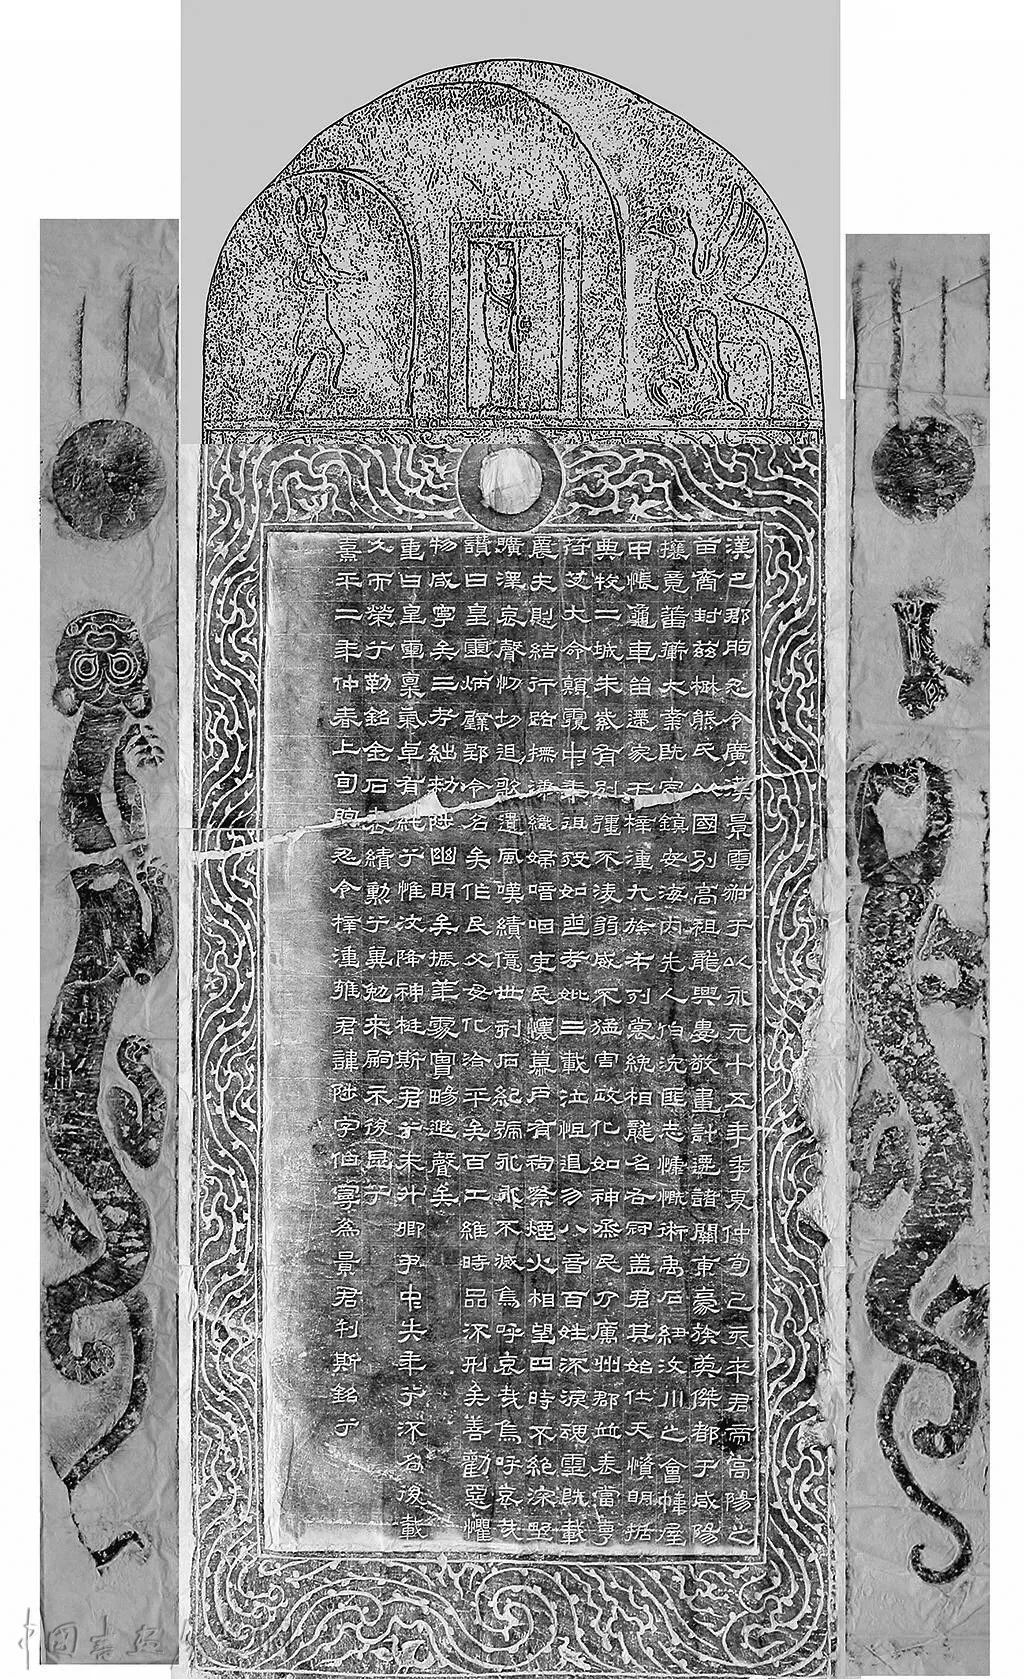 漢巴郡朐忍令廣漢景雲叔于以永元十五年季夏仲旬己亥卒君帝高陽之
苗裔封茲楚熊氏以國別高祖龍興婁敬畫計遷諸關東豪族英傑都于咸陽
攘竟蕃衛大業既定鎮安海內先人伯沇匪志慷慨術禹石紐汶川之會幃屋
甲帳龜車留遰家于梓潼九族布列裳絻相龍名右冠蓋君其始仕天資明括
典牧二城朱紫有別彊不凌弱威不猛害政化如神烝民乃厲州郡並表當亨
苻艾大命顛覆中年徂歿如喪考妣三載泣怛遏勿八音百姓流淚魂靈既載
農夫惻結行路撫涕織婦喑咽吏民懷慕戶有祠祭煙火相望四時不絕深野
曠澤哀聲忉切追歌遺風嘆績億世刻石紀號永永不滅烏呼哀哉烏呼哀哉
讚曰皇靈炳璧郢令名矣作民父母化洽平矣百工維時品流刑矣善勸惡懼
物咸寧矣三考絀勑陟幽明矣振華處實暘遐聲矣
重曰皇靈稟氣卓有純兮惟汶降神梃斯君兮未升卿尹中失年兮流名後載
久而榮兮勒銘金石表績勳兮冀勉來嗣示後昆兮
熹平二年仲春上旬朐忍令梓潼雍君諱陟字伯寧為景君刊斯銘兮
中國書畫